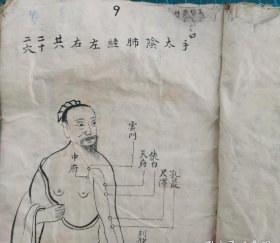 9
手太陰肺縫左右共二十二穴
雲門
中府
天府
俠白
尺澤
孔最
列